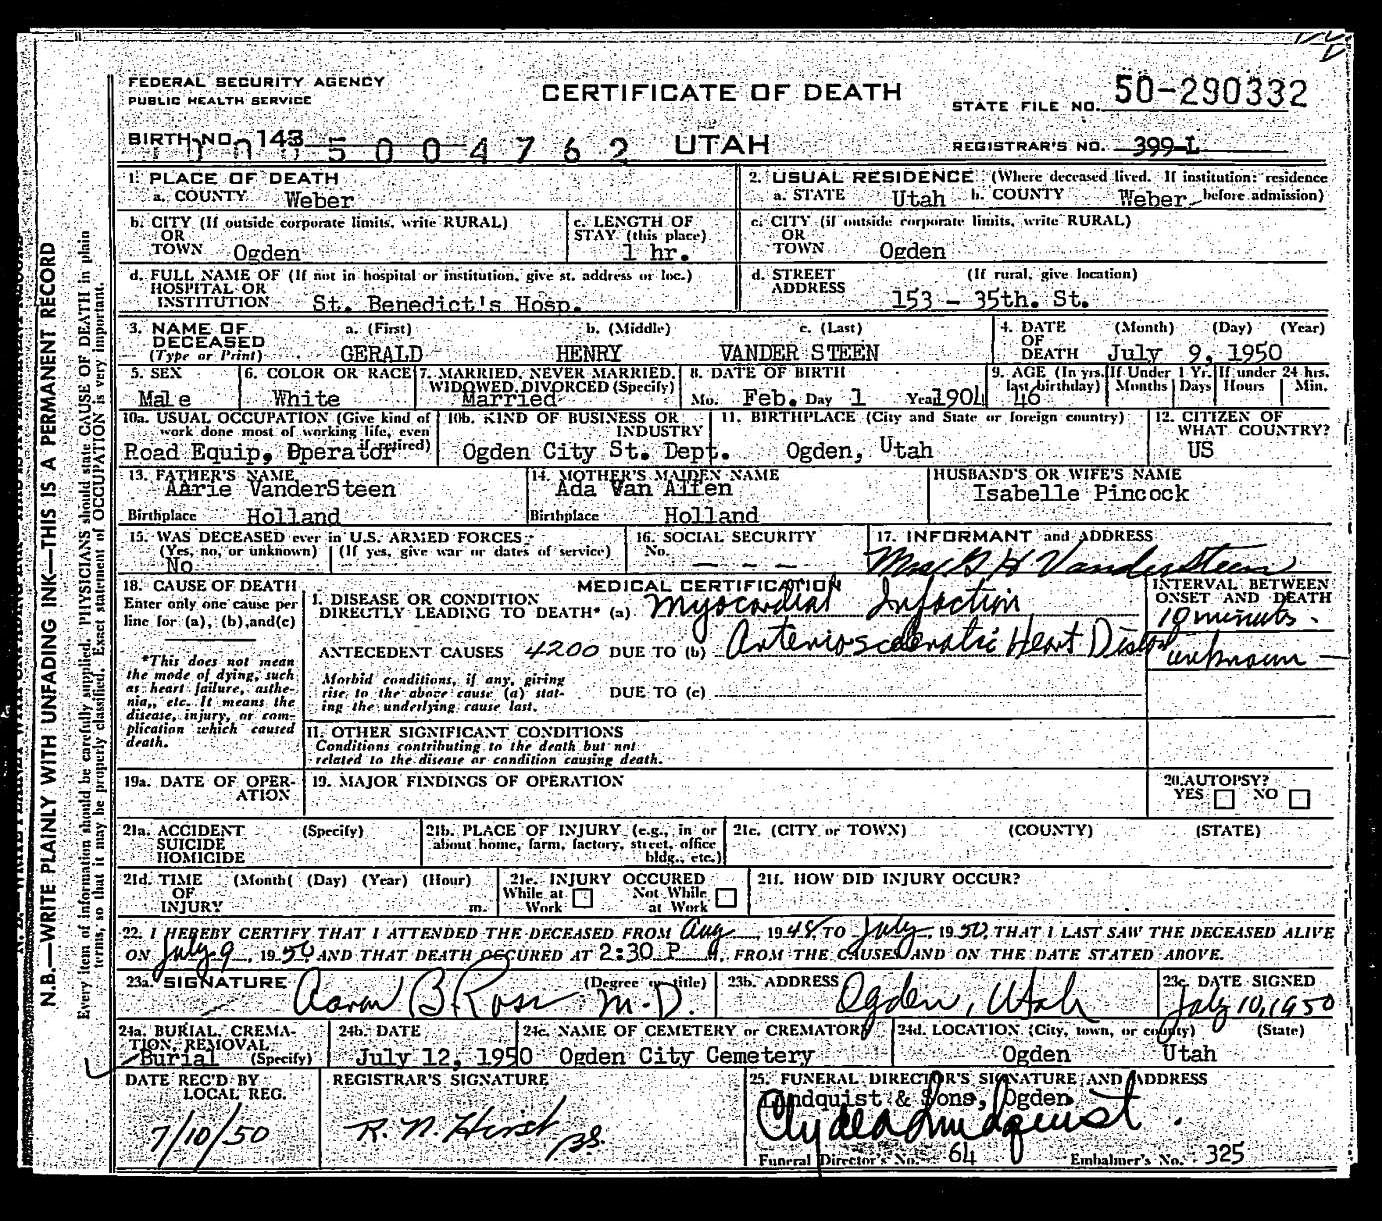 FEDERAL SECURITY AGENCY
PUBLIC HEALTH SERVICE
CERTIFICATE OF DEATH
STATE FILE NO. 50-290332
BIRTH NO. 143
5 0 0 4 7 6 2
UTAH
REGISTRAR'S NO. 399-L
1. PLACE OF DEATH
a. COUNTY Weber
2. USUAL RESIDENCE (Where deceased lived. If institution: residence
a. STATE Utah b. COUNTY Weber before admission)
b. CITY (If outside corporate limits, write RURAL)
OR
TOWN Ogden
c. LENGTH OF
STAY (this place)
1 hr.
c. CITY (if outside corporate limits, write RURAL)
OR
TOWN Ogden
d. FULL NAME OF (If not in hospital or institution, give st. address or loc.)
HOSPITAL OR
INSTITUTION St. Benedict's Hosp.
d. STREET (If rural, give location)
ADDRESS
153 - 35th. St.
3. NAME OF a. (First) b. (Middle) c. (Last)
DECEASED
(Type or Print) GERALD HENRY VANDER STEEN
4. DATE (Month) (Day) (Year)
OF
DEATH July 9, 1950
5. SEX
Male
6. COLOR OR RACE
White
7. MARRIED, NEVER MARRIED,
WIDOWED, DIVORCED (Specify)
Married
8. DATE OF BIRTH
Mo. Feb. Day 1 Year 1904
9. AGE (In yrs. last birthday) If Under 1 Yr. If under 24 hrs.
Months Days Hours Min.
46
10a. USUAL OCCUPATION (Give kind of
work done most of working life, even
if retired)
Road Equip, Operator
10b. KIND OF BUSINESS OR
INDUSTRY
Ogden City St. Dept.
11. BIRTHPLACE (City and State or foreign country)
Ogden, Utah
12. CITIZEN OF
WHAT COUNTRY?
US
13. FATHER'S NAME
Aarie VanderSteen
Birthplace Holland
14. MOTHER'S MAIDEN NAME
Ada Van Alfen
Birthplace Holland
HUSBAND'S OR WIFE'S NAME
Isabelle Pincock
15. WAS DECEASED ever in U.S. ARMED FORCES?
(Yes, no, or unknown) (If yes, give war or dates of service)
No
16. SOCIAL SECURITY
No.
- - -
17. INFORMANT and ADDRESS
Mrs. G H VanderSteen
18. CAUSE OF DEATH
Enter only one cause per
line for (a), (b), and (c)
*This does not mean
the mode of dying, such
as heart failure, asthe-
nia, etc. It means the
disease, injury, or com-
plication which caused
death.
MEDICAL CERTIFICATION
I. DISEASE OR CONDITION
DIRECTLY LEADING TO DEATH* (a) Myocardial Infaction
ANTECEDENT CAUSES 4200 DUE TO (b) Arterioscleratic Heart Disease
Morbid conditions, if any, giving
rise to the above cause (a) stat-
ing the underlying cause last.
DUE TO (c)
INTERVAL BETWEEN
ONSET AND DEATH
10 minuts.
unknown
II. OTHER SIGNIFICANT CONDITIONS
Conditions contributing to the death but not
related to the disease or condition causing death.
19a. DATE OF OPER-
ATION
19. MAJOR FINDINGS OF OPERATION
20. AUTOPSY?
YES NO
21a. ACCIDENT (Specify)
SUICIDE
HOMICIDE
21b. PLACE OF INJURY (e.g., in or
about home, farm, factory, street, office
bldg., etc.)
21c. (CITY or TOWN) (COUNTY) (STATE)
21d. TIME (Month( (Day) (Year) (Hour)
OF
INJURY m.
21e. INJURY OCCURED
While at Work Not While at Work
21f. HOW DID INJURY OCCUR?
22. I HEREBY CERTIFY THAT I ATTENDED THE DECEASED FROM Aug, 1948, TO July 1950, THAT I LAST SAW THE DECEASED ALIVE
ON July 9, 1950 AND THAT DEATH OCCURED AT 2:30 P M, FROM THE CAUSES AND ON THE DATE STATED ABOVE.
23a. SIGNATURE (Degree or title)
Aaron B. Ross M.D.
23b. ADDRESS
Ogden, Utah
23c. DATE SIGNED
July 10, 1950
24a. BURIAL, CREMA-
TION, REMOVAL
(Specify)
Burial
24b. DATE
July 12, 1950
24c. NAME OF CEMETERY or CREMATORY
Ogden City Cemetery
24d. LOCATION (City, town, or county) (State)
Ogden Utah
DATE REC'D BY
LOCAL REG.
7/10/50
REGISTRAR'S SIGNATURE
R. N. Hirst
25. FUNERAL DIRECTOR'S SIGNATURE AND ADDRESS
Lindquist & Sons, Ogden
Clyde Lindquist
Funeral Director's No. 64 Embalmer's No. 325
N.B.—WRITE PLAINLY WITH UNFADING INK—THIS IS A PERMANENT RECORD
Every item of information should be carefully supplied. PHYSICIANS should state CAUSE OF DEATH in plain
terms, so that it may be properly classified. Exact statement of OCCUPATION is very important.